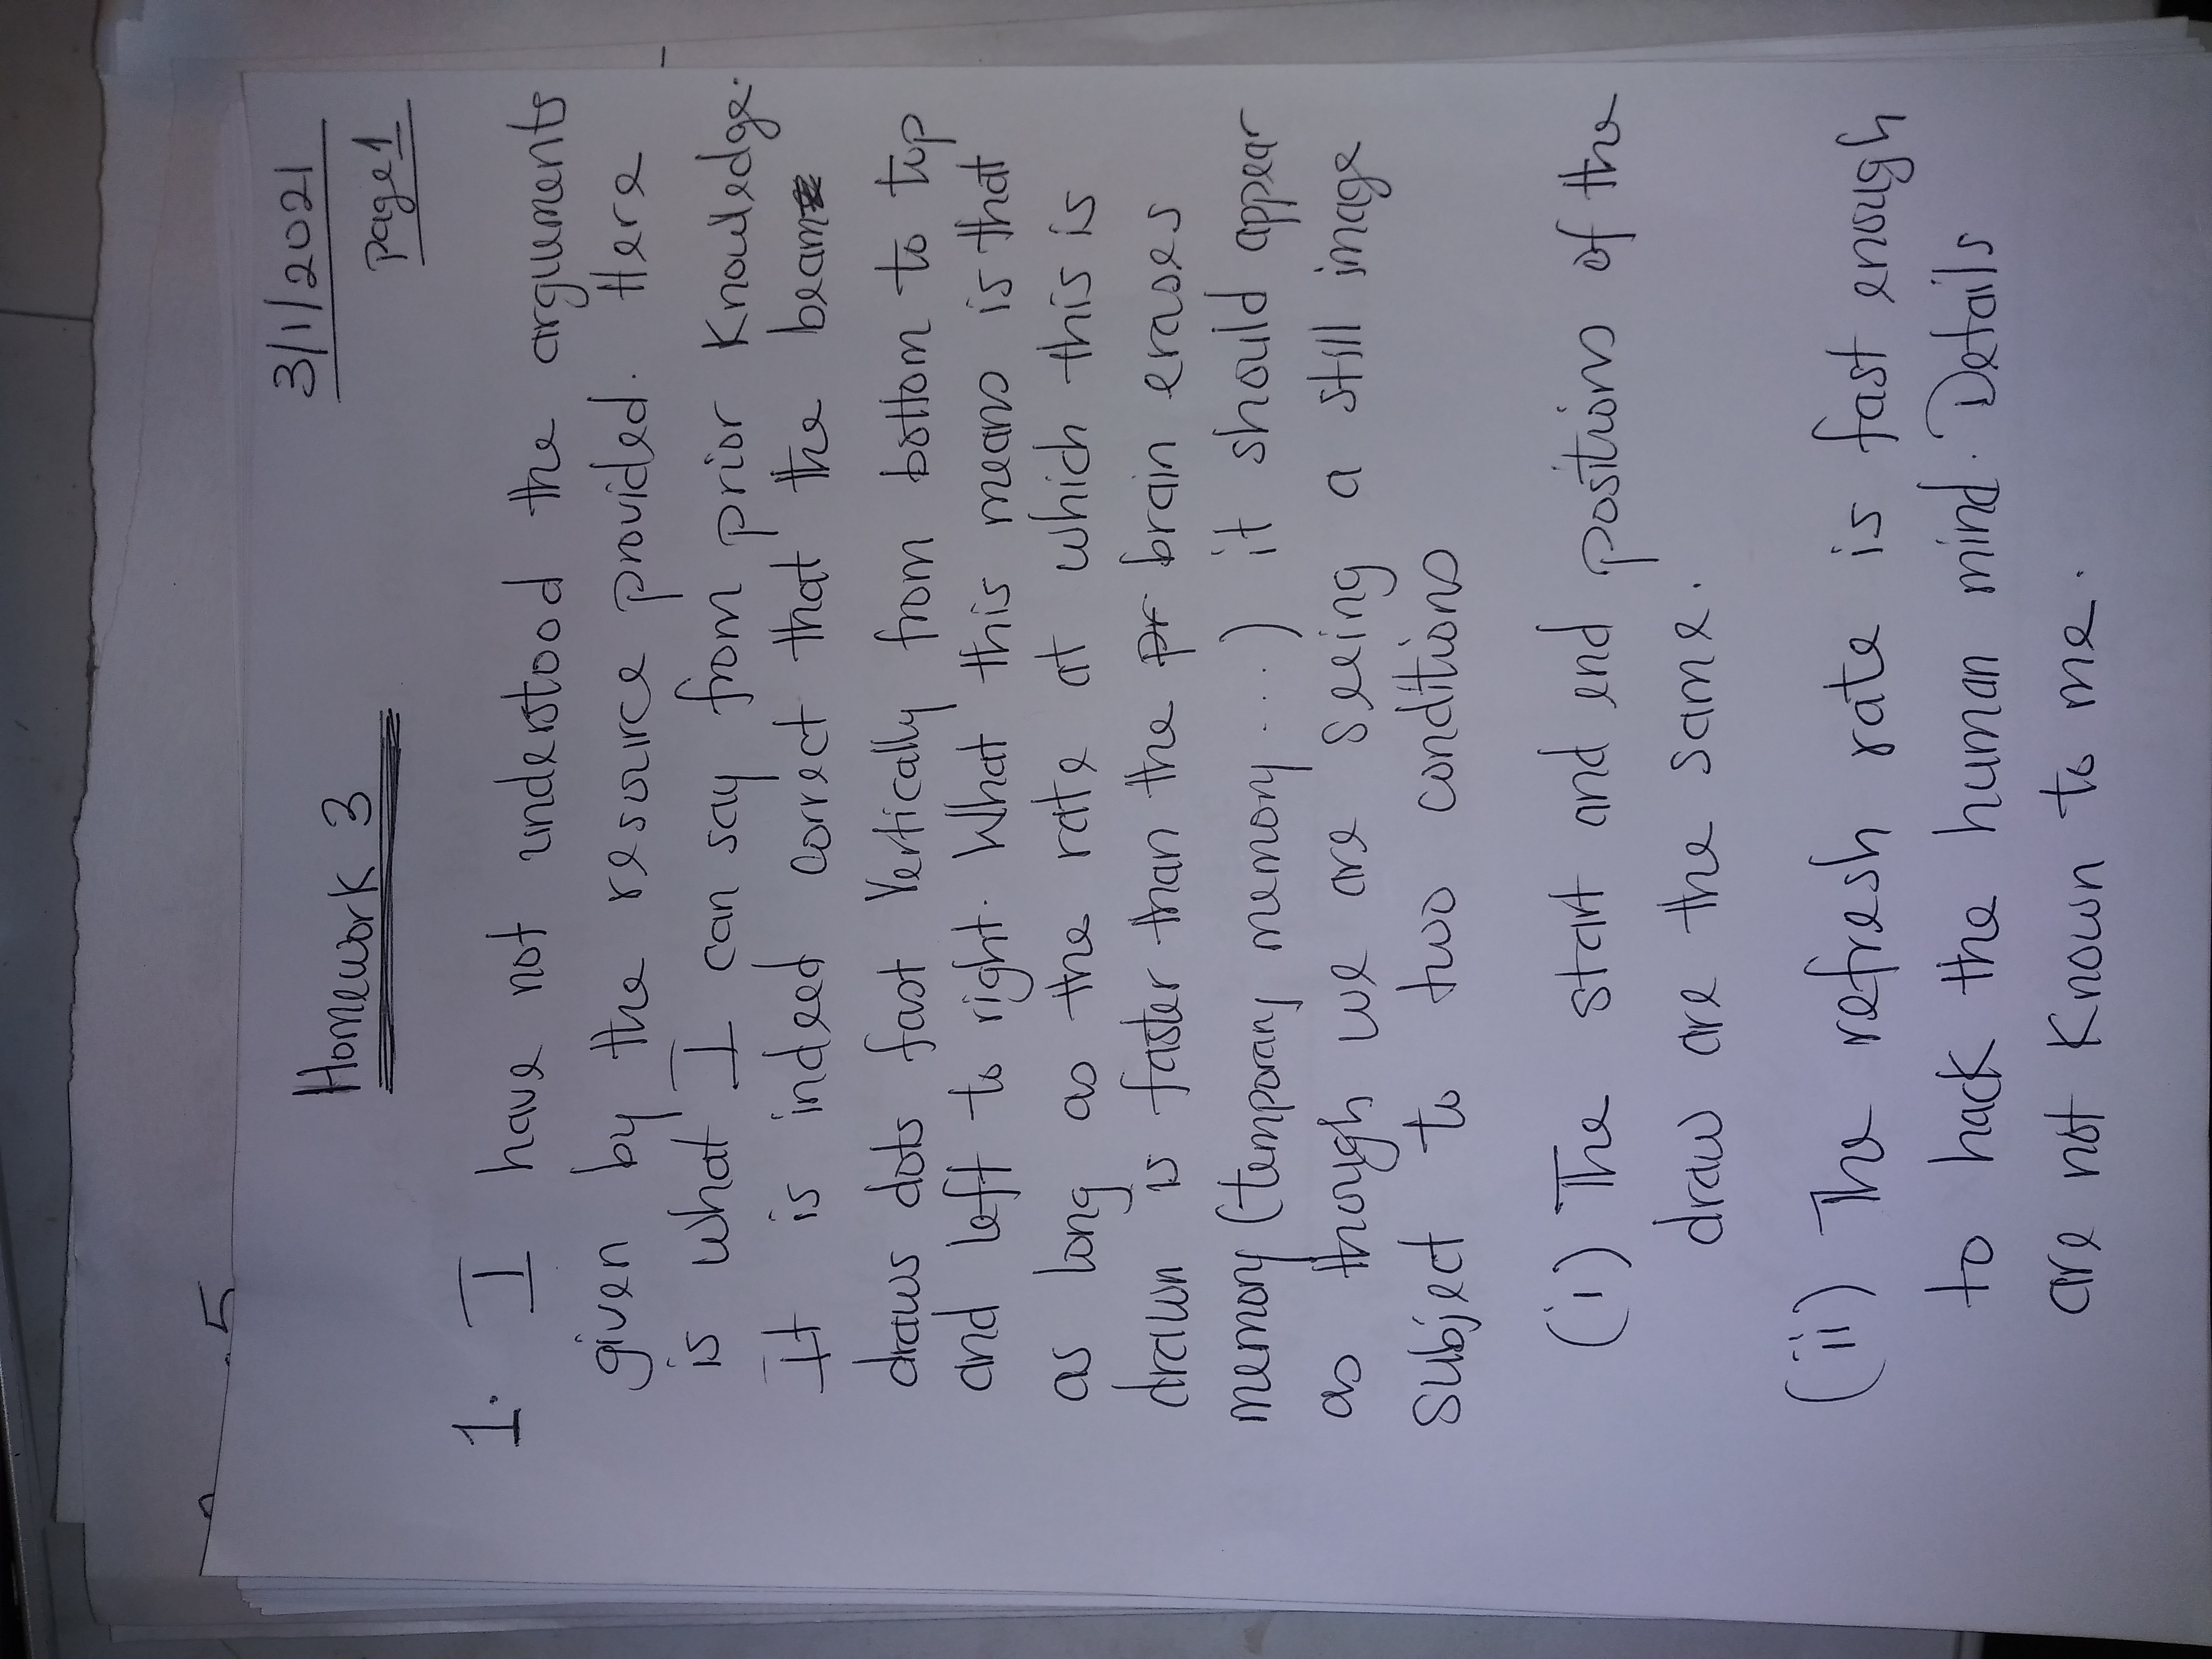 5
3/1/2021
Homework 3
page 1
1. I have not understood the arguements
given by the resource provided. Here
is what I can say from prior Knowledge.
It is indeed correct that the beam
draws dots fast Vertically from bottom to top
and left to right. What this means is that
as long as the rate at which this is
drawn is faster than the pr brain erases
memory (temporary memory ...) it should appear
as though we are seeing a still image
subject to two conditions
(i) The start and end positions of the
draw are the same.
(ii) The refresh rate is fast enough
to hack the human mind. Details
are not Known to me.